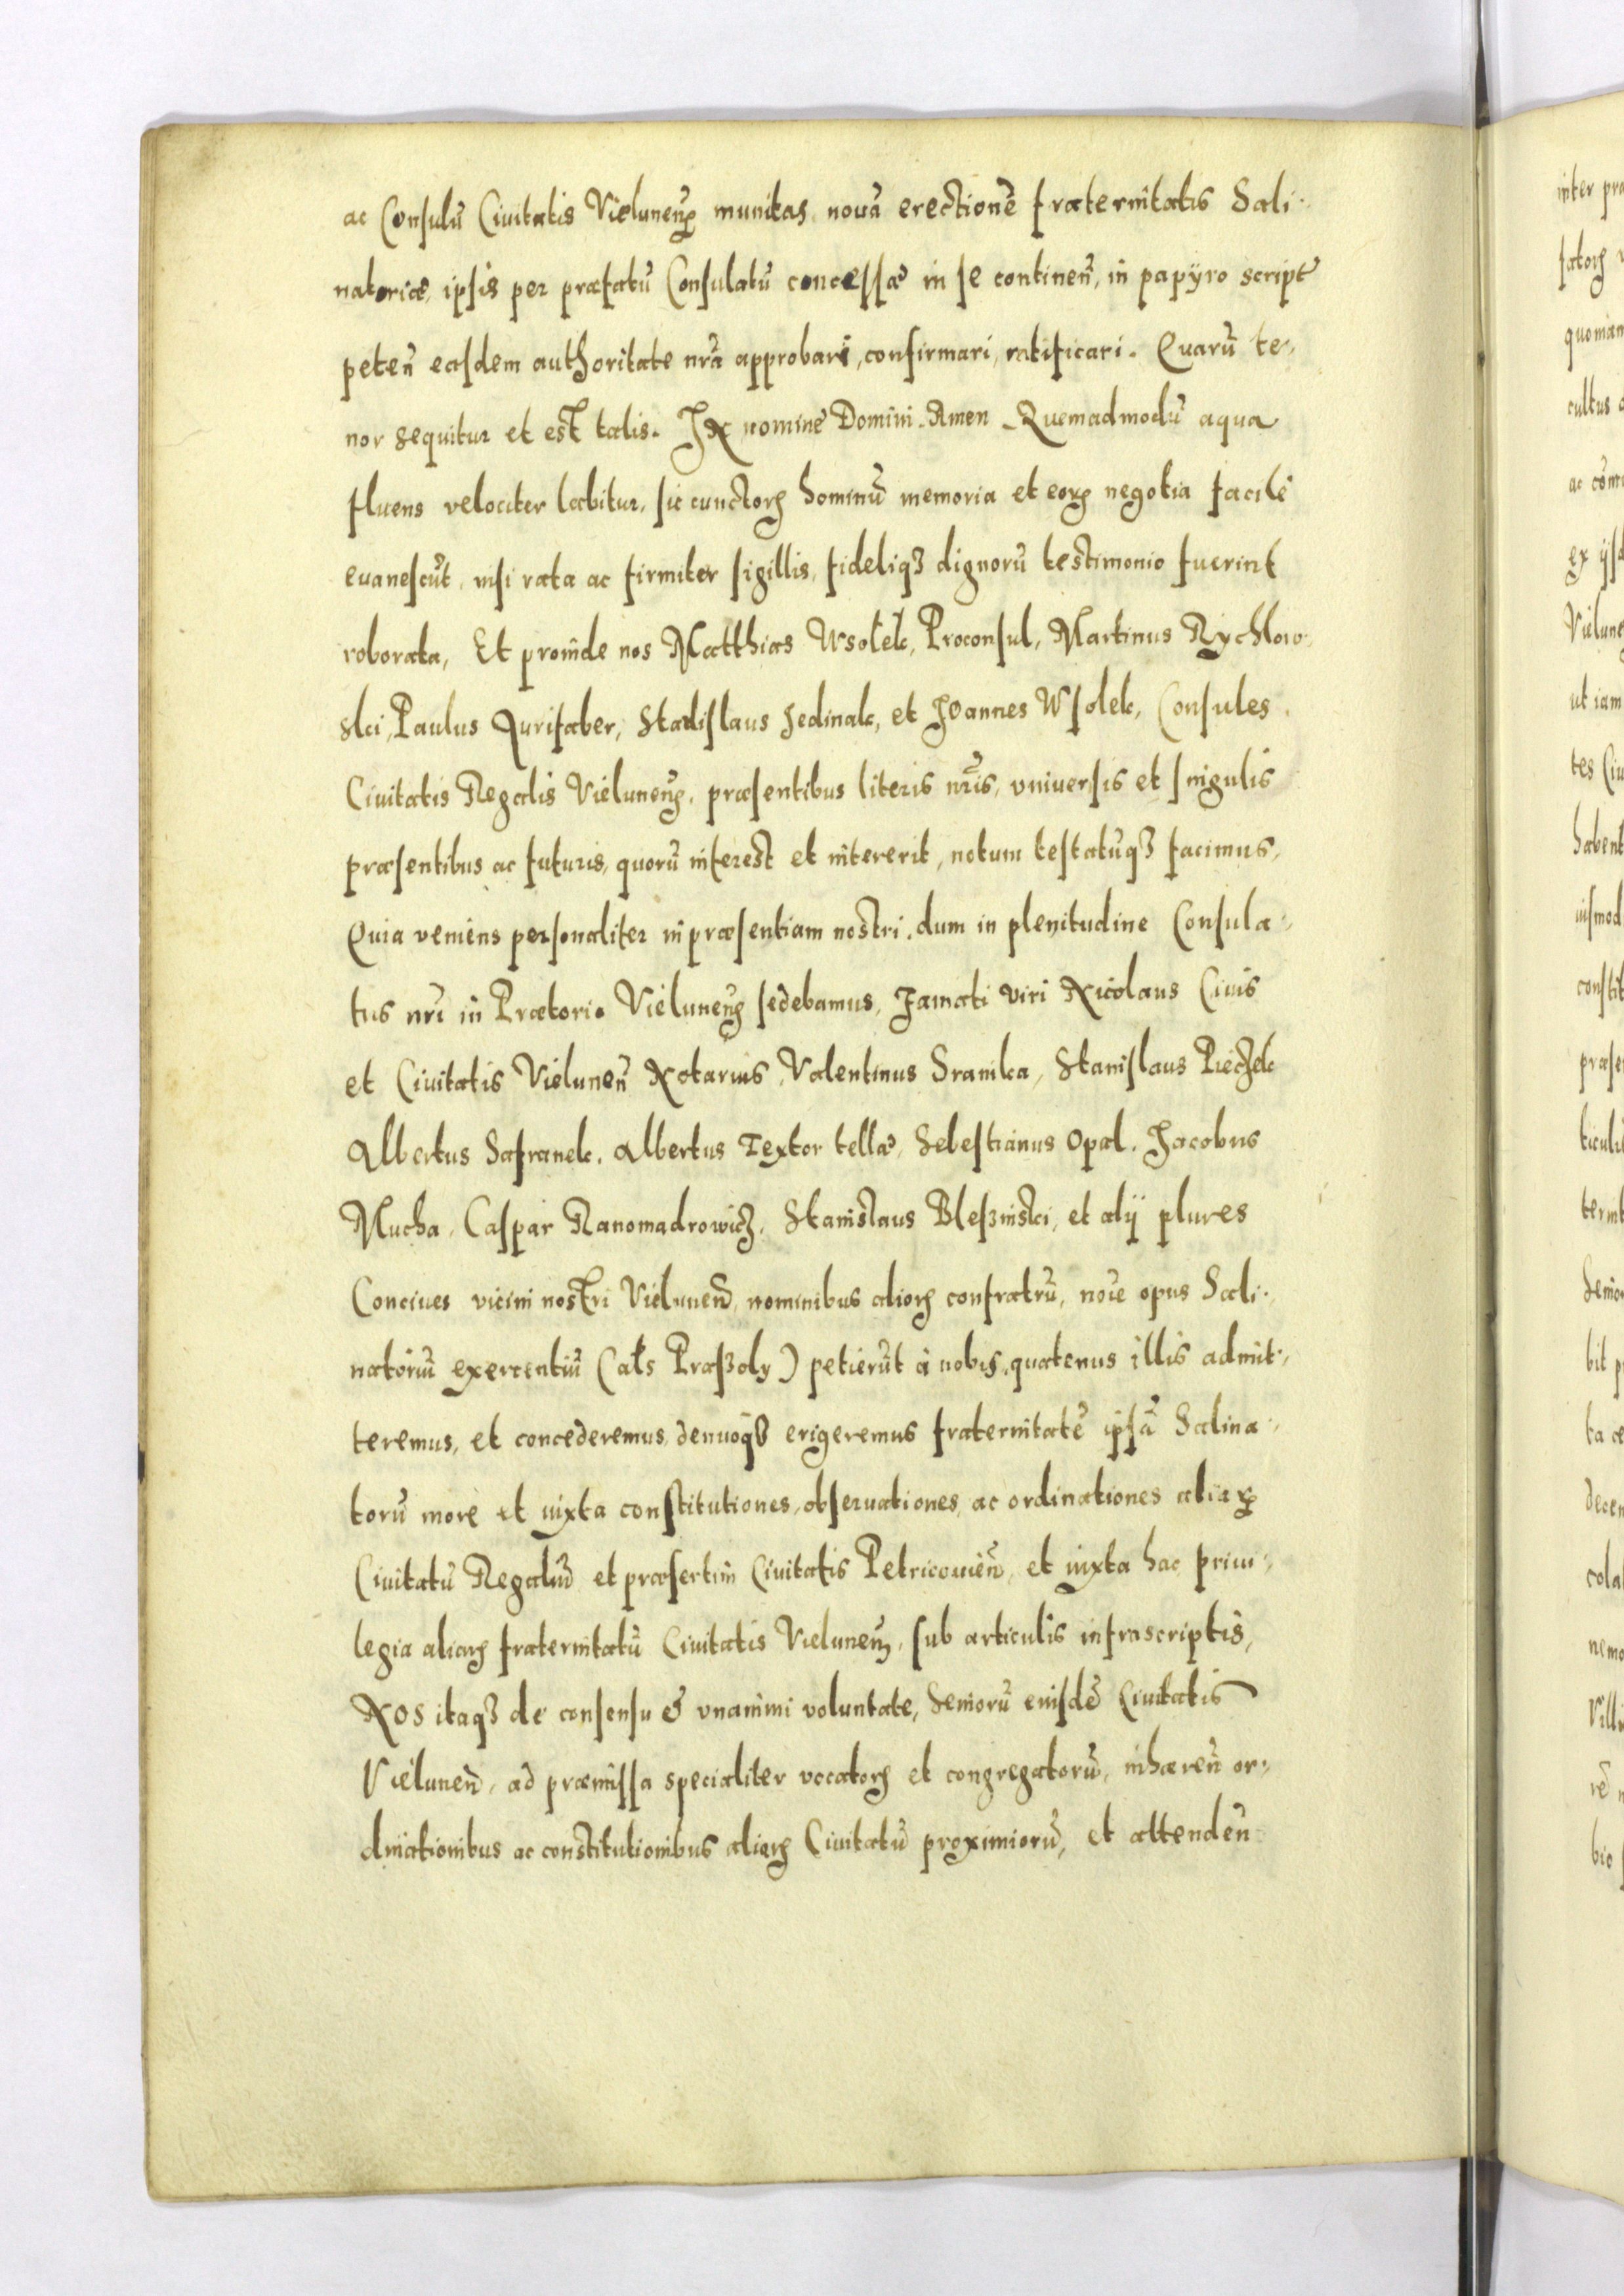 ac Consulū Civitatis Vielunenꝝ munitas, nouā erectionē fraternitatis Sali-
natoriæ, ipsis per præfatū Consulatū concessæ in se continen̄, in papÿro script
peten̄ easdem authoritate nr̄a approbari, confirmari, ratificari. Quarū te-
nor sequitur et est talis. IN nomine Domini Amen Quemadmodū aqua
fluens velociter labitur, sic cunctorꝝ hominū memoria et eorꝝ negotia facile
euanescūt, nisi rata ac firmiter sigillis, fideliqꝫ dignorū testimonio fuerint
roborata, Et proinde nos Matthias Wsolek, Proconsul, Martinus Rychlow-
ski, Paulus Aurifaber, Stadislaus Jedinak, et Joannes Wsolek, Consules
Ciuitatis Regalis Vielunenꝝ, præsentibus literis nr̄is, vniuersis et singulis
præsentibus ac futuris, quorū interest et intererit, notum testatūqꝫ facimus,
Quia veniens personaliter in præsentiam nostri, dum in plenitudine Consula-
tus nr̄i in Prætorio Vielunenꝝ sedebamus, Famati viri Nicolaus Ciuis
et Ciuitatis Vielunen̄ Notarius, Valentinus Sranika, Stanislaus Pieczek
Albertus Safranek, Albertus Textor tellæ, Sebestianus Opal, Jacobus
Mucha, Caspar Nanomadrowicz, Stanislaus Bleszinski, et alÿ plures
Conciues vicini nostri Vielunen̄, nominibus aliorꝝ confratrū, noue opus Sali-
natoriū exercentiū (als Praszoly) petierūt à nobis, quatenus illis admit-
teremus, et concederemus, denuoqꝫ erigeremus fraternitatē ipsā Salina-
torū more et iuxta constitutiones, obseruationes, ac ordinationes aliaꝝ
Ciuitatū Regaliū et præsertim Ciuitatis Petricouien̄, et iuxta hac priui-
legia aliarꝝ fraternitatū Ciuitatis Vielunenꝫ, sub articulis infrascriptis,
NOS itaqꝫ de consensu & vnanimi voluntate, Seniorū eiusdē Ciuitatis
Vielunen̄, ad præmissa specialiter vocatorꝝ et congregatorū, inhæren̄ or-
dinationibus ac constitutionibus aliarꝝ Ciuitatū proximiorū, et attenden̄